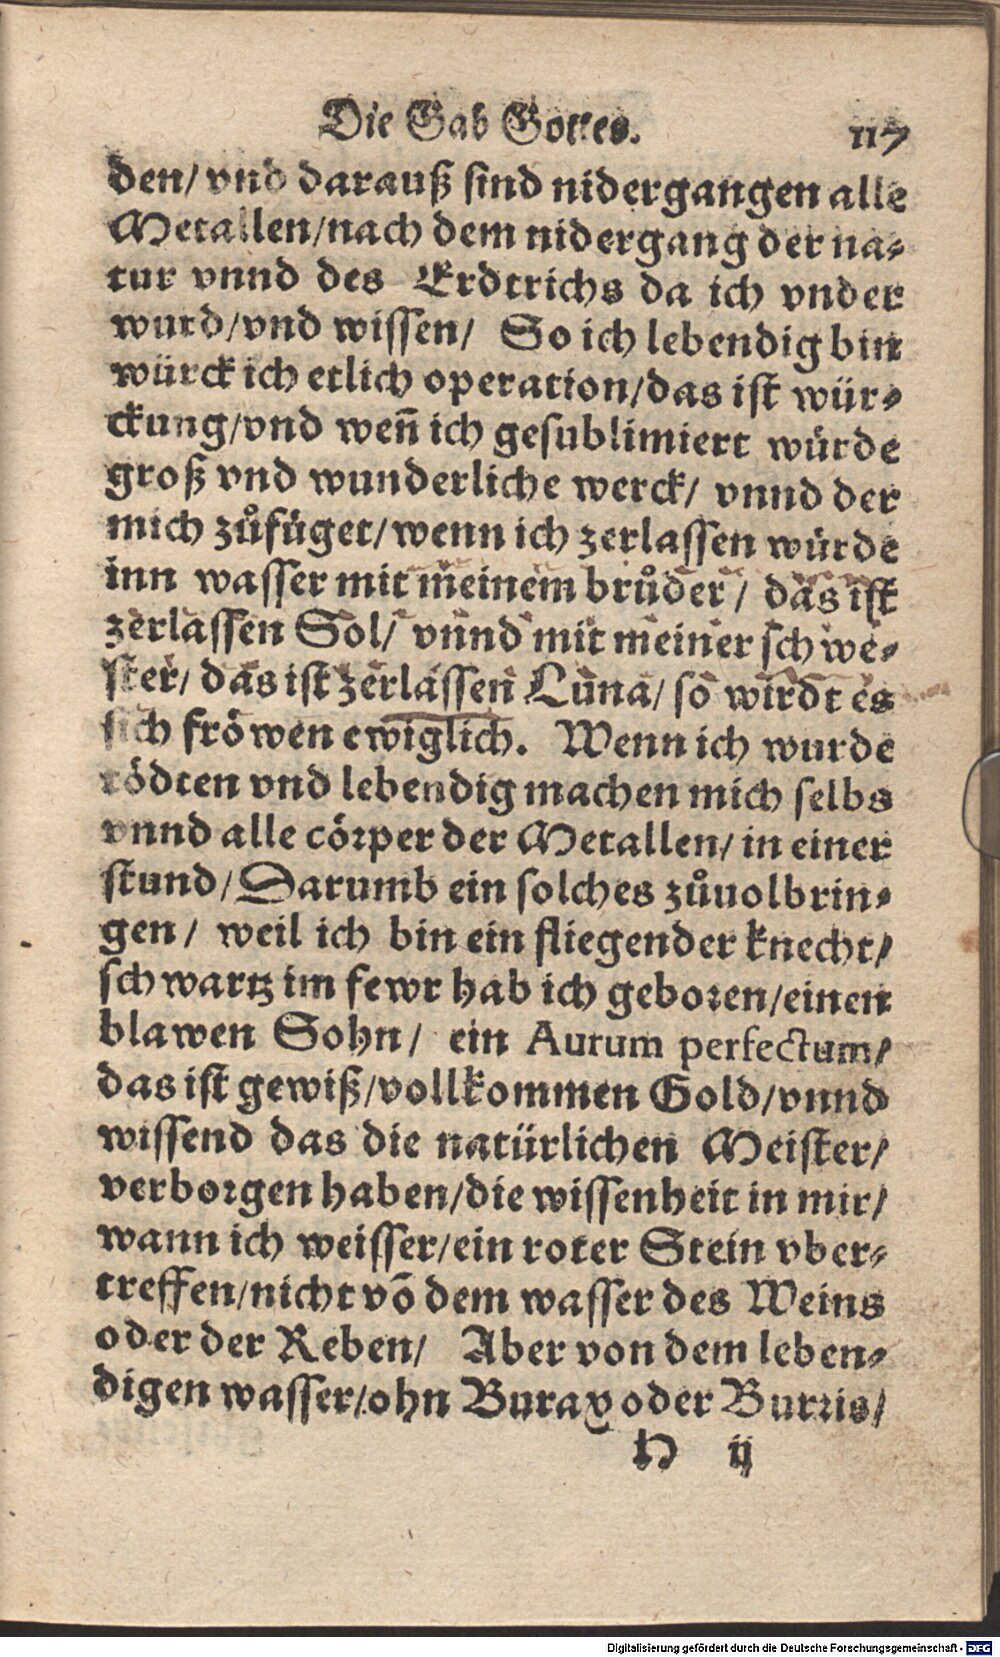 Die Gab Gottes. 117
den/ vnd darauß sind nidergangen alle
Metallen/nach dem nidergang der na-
tur vnnd des Erdtrichs da ich vnder
wurd/vnd wissen/ So ich lebendig bin
würck ich etlich operation/das ist wür-
ckung/vnd weñ ich gesublimiert würde
groß vnd wunderliche werck/ vnnd der
mich zůfüget/wenn ich zerlassen würde
inn wasser mit meinem brůder/ das ist
zerlassen Sol/ vnnd mit meiner schwe-
ster/ das ist zerlassen Luna/ so wirdt es
sich fröwen ewiglich. Wenn ich wurde
tödten vnd lebendig machen mich selbs
vnnd alle cörper der Metallen/ in einer
stund/ Darumb ein solches zůuolbrin-
gen/ weil ich bin ein fliegender knecht/
schwartz im fewr hab ich geboren/einen
blawen Sohn/ ein Aurum perfectum/
das ist gewiß/vollkommen Gold/vnnd
wissend das die natürlichen Meister/
verborgen haben/die wissenheit in mir/
wann ich weisser/ein roter Stein vber-
treffen/nicht võ dem wasser des Weins
oder der Reben/ Aber von dem leben-
digen wasser/ohn Buray oder Burris/
H ij
Digitalisierung gefördert durch die Deutsche Forschungsgemeinschaft - DFG